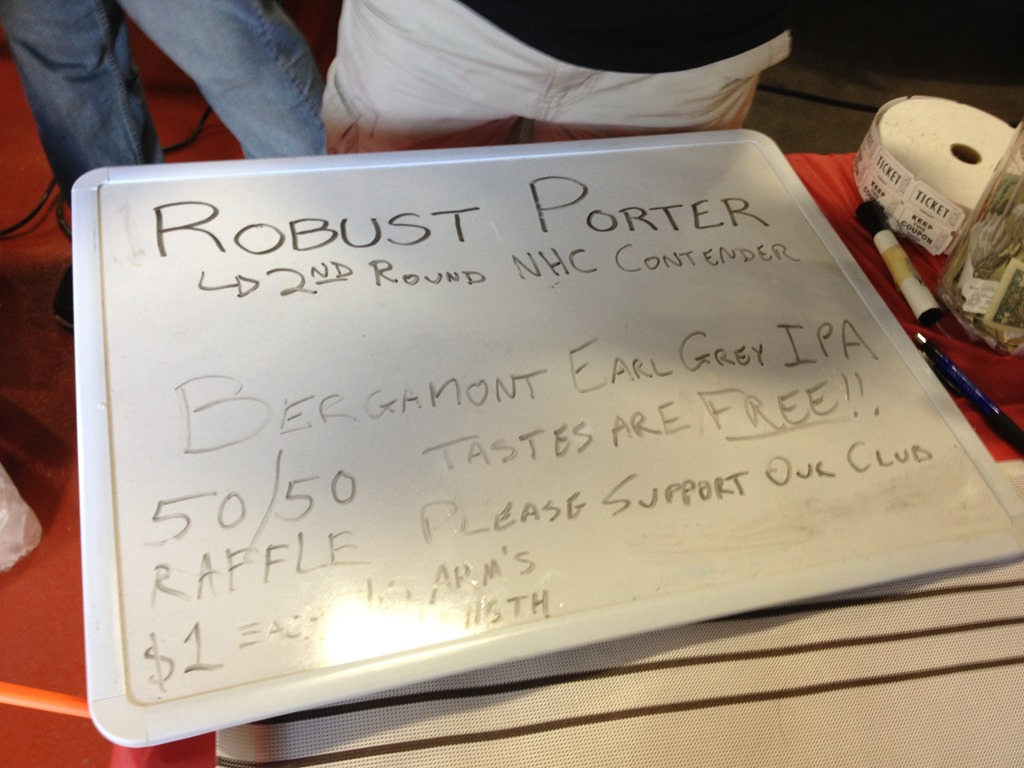 ROBUST PORTER
↳ 2ND ROUND NHC CONTENDER
BERGAMONT EARL GREY IPA
TASTES ARE FREE!!
50/50
RAFFLE
PLEASE SUPPORT OUR CLUB
$1 EACH
ARM'S
TICKET
KEEP
COUPON
TICKET
KEEP
THIS
COUPON